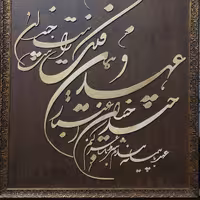 عهد و پیمان فلک را نیست چندان اعتبار
عهد با پیمانه بندم شرط با ساغر کنم